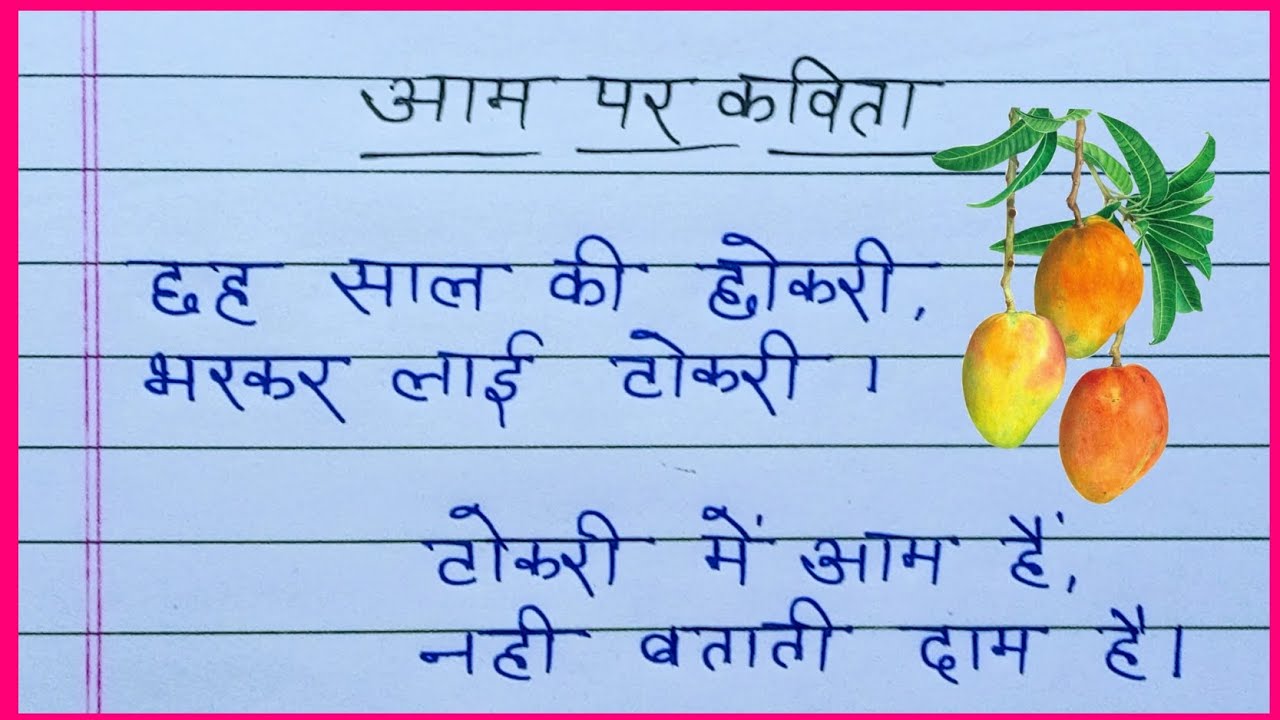 आम पर कविता
छह साल की छोकरी,
भरकर लाई टोकरी ।
टोकरी में आम हैं,
नही बताती दाम है।